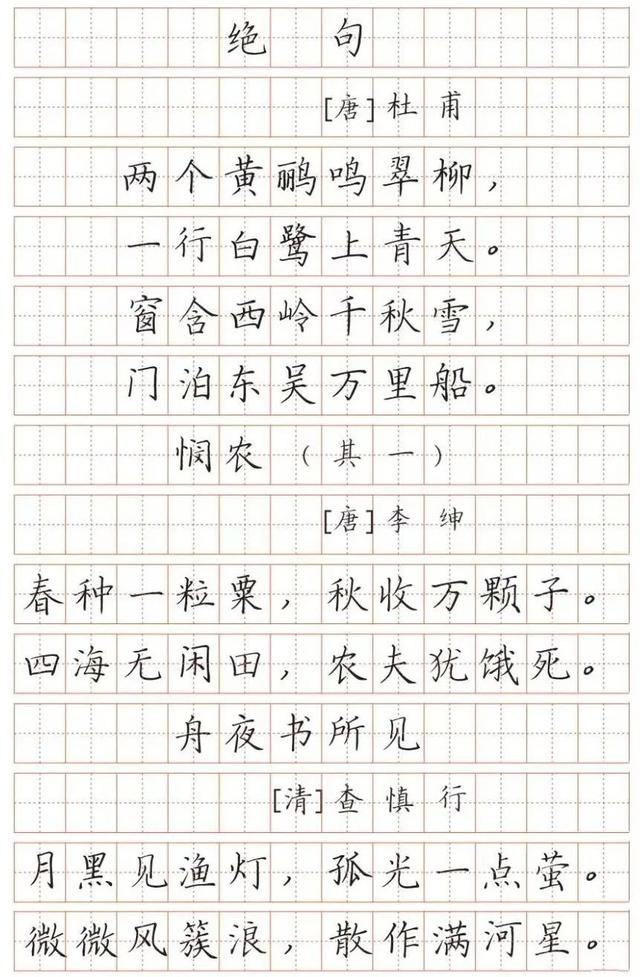 绝句
[唐]杜甫
两个黄鹂鸣翠柳，
一行白鹭上青天。
窗含西岭千秋雪，
门泊东吴万里船。
悯农（其一）
[唐]李绅
春种一粒粟，秋收万颗子。
四海无闲田，农夫犹饿死。
舟夜书所见
[清]查慎行
月黑见渔灯，孤光一点萤。
微微风簇浪，散作满河星。